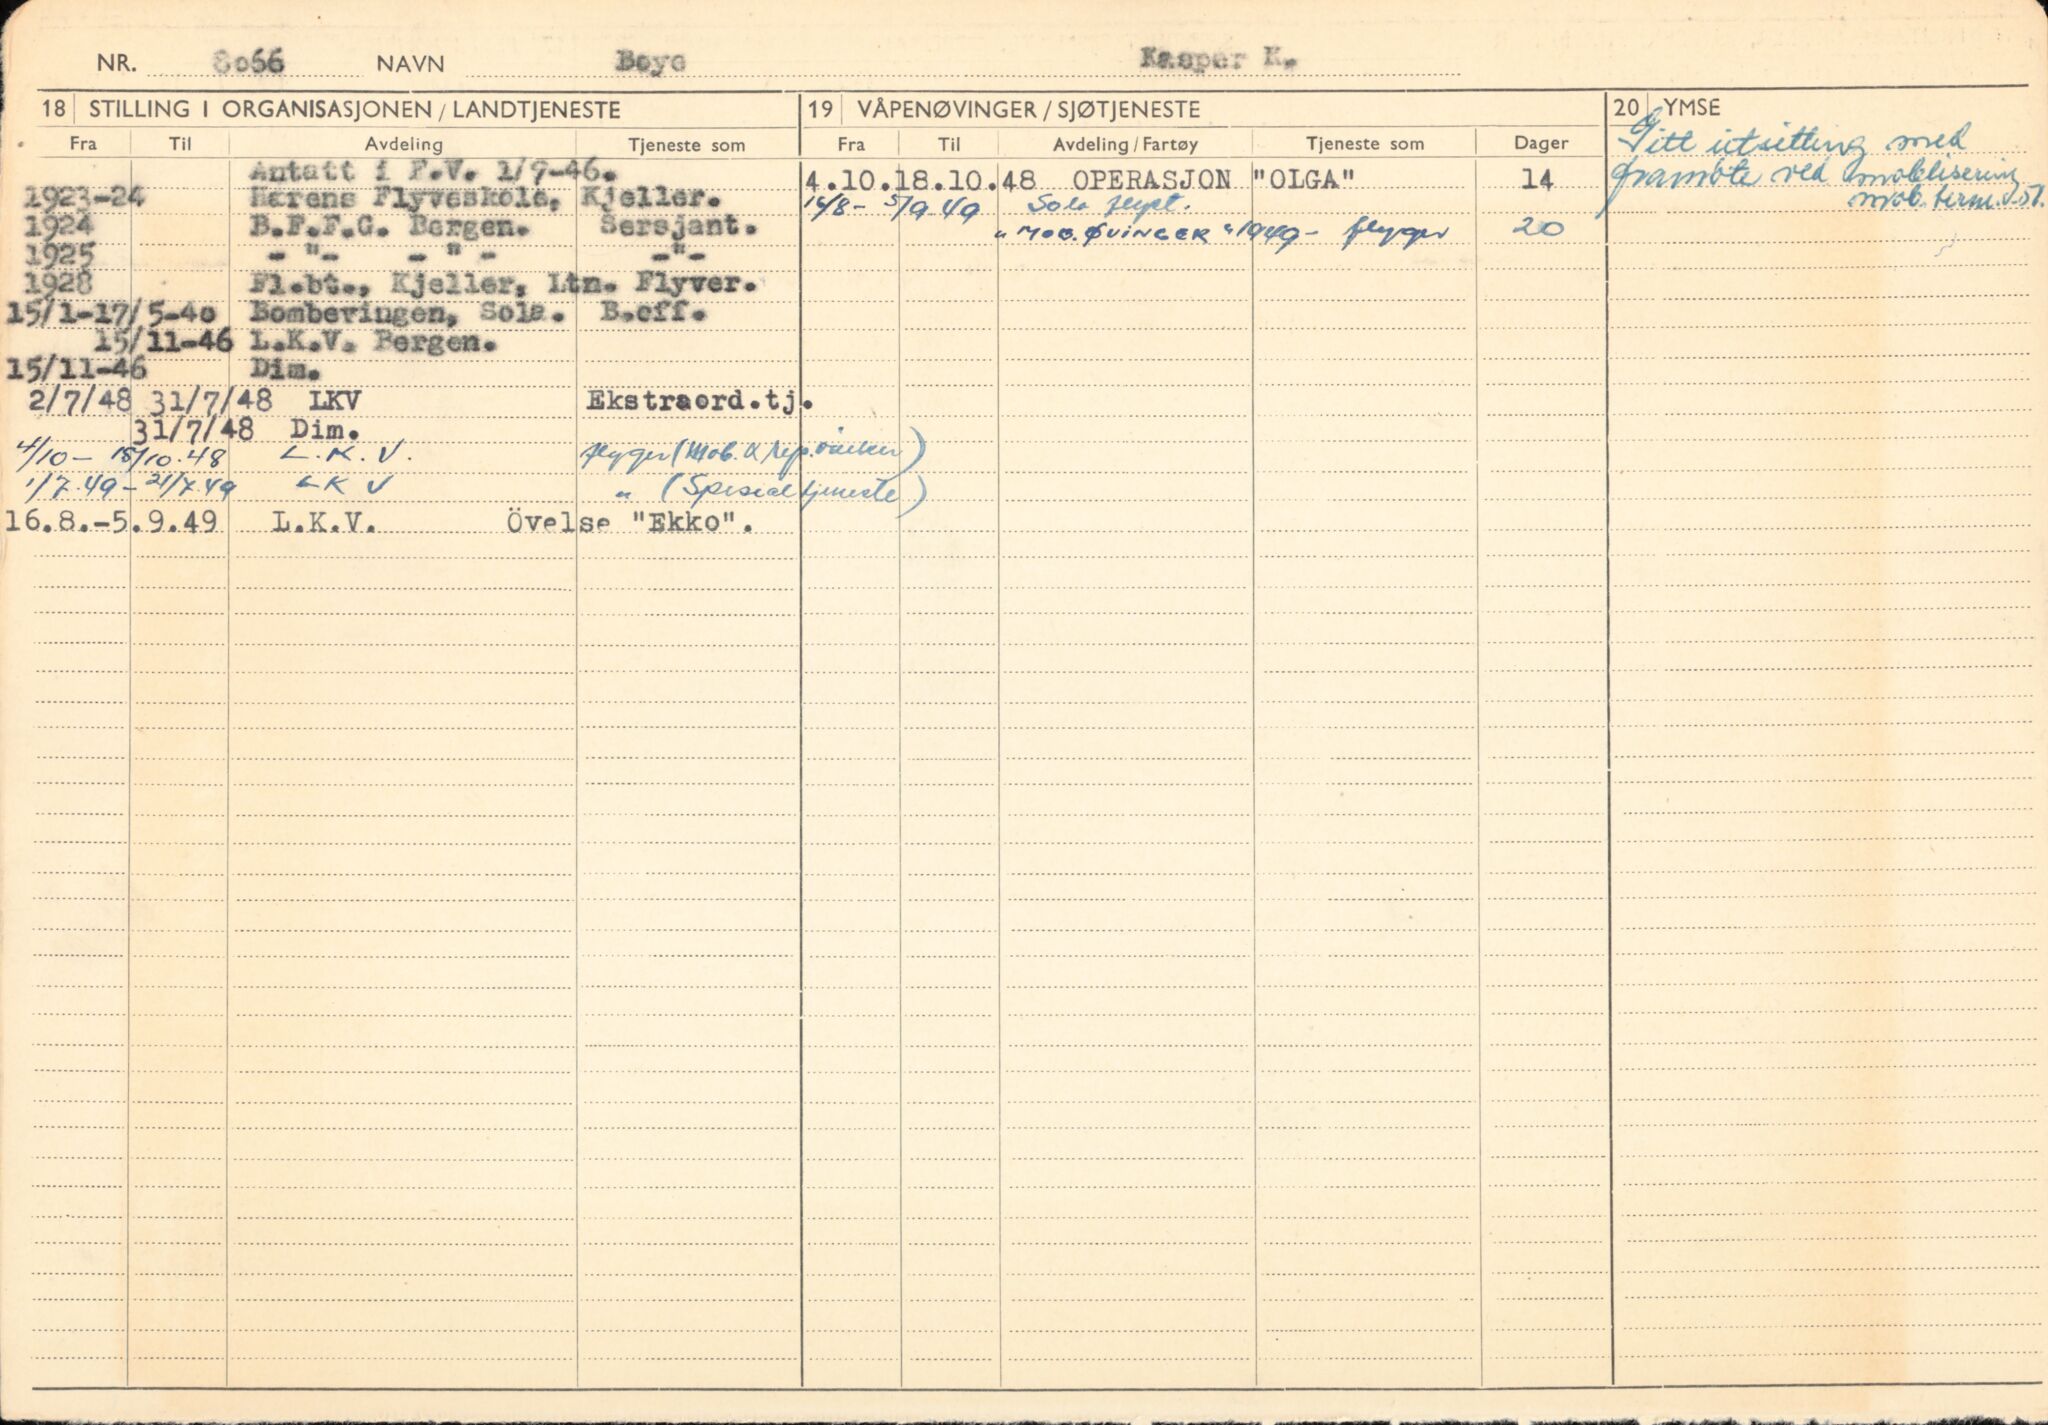 NR. 8066 NAVN Boye Kasper K.
18 STILLING I ORGANISASJONEN / LANDTJENESTE
Fra Til Avdeling Tjeneste som
Antatt i F.V. 1/9-46.
1923-24 Hærens Flyveskole, Kjeller.
1924 B.F.F.G. Bergen. Sersjant.
1925 - " - - " - - " -
1928 Fl.bt., Kjeller, Ltn. Flyver.
15/1-17/5-40 Bombevingen, Sola. B.off.
15/11-46 L.K.V. Bergen.
15/11-46 Dim.
2/7/48 31/7/48 LKV Ekstraord.tj.
31/7/48 Dim.
4/10 - 18/10.48 L.K.V. flyger (Mob. & rep.øvelser)
1/7.49 - 21/7.49 LKV " (Spesialtjeneste)
16.8.-5.9.49 L.K.V. Övelse "Ekko".
19 VÅPENØVINGER / SJØTJENESTE
Fra Til Avdeling / Fartøy Tjeneste som Dager
4.10.18.10.48 OPERASJON "OLGA" 14
16/8 - 5/9 49 Sola flypl.
"MOB.ØVINGER" 1949 - flyger 20
20 YMSE
Gitt utsitting med
framøte ved mobilisering
mob. term. V-51.